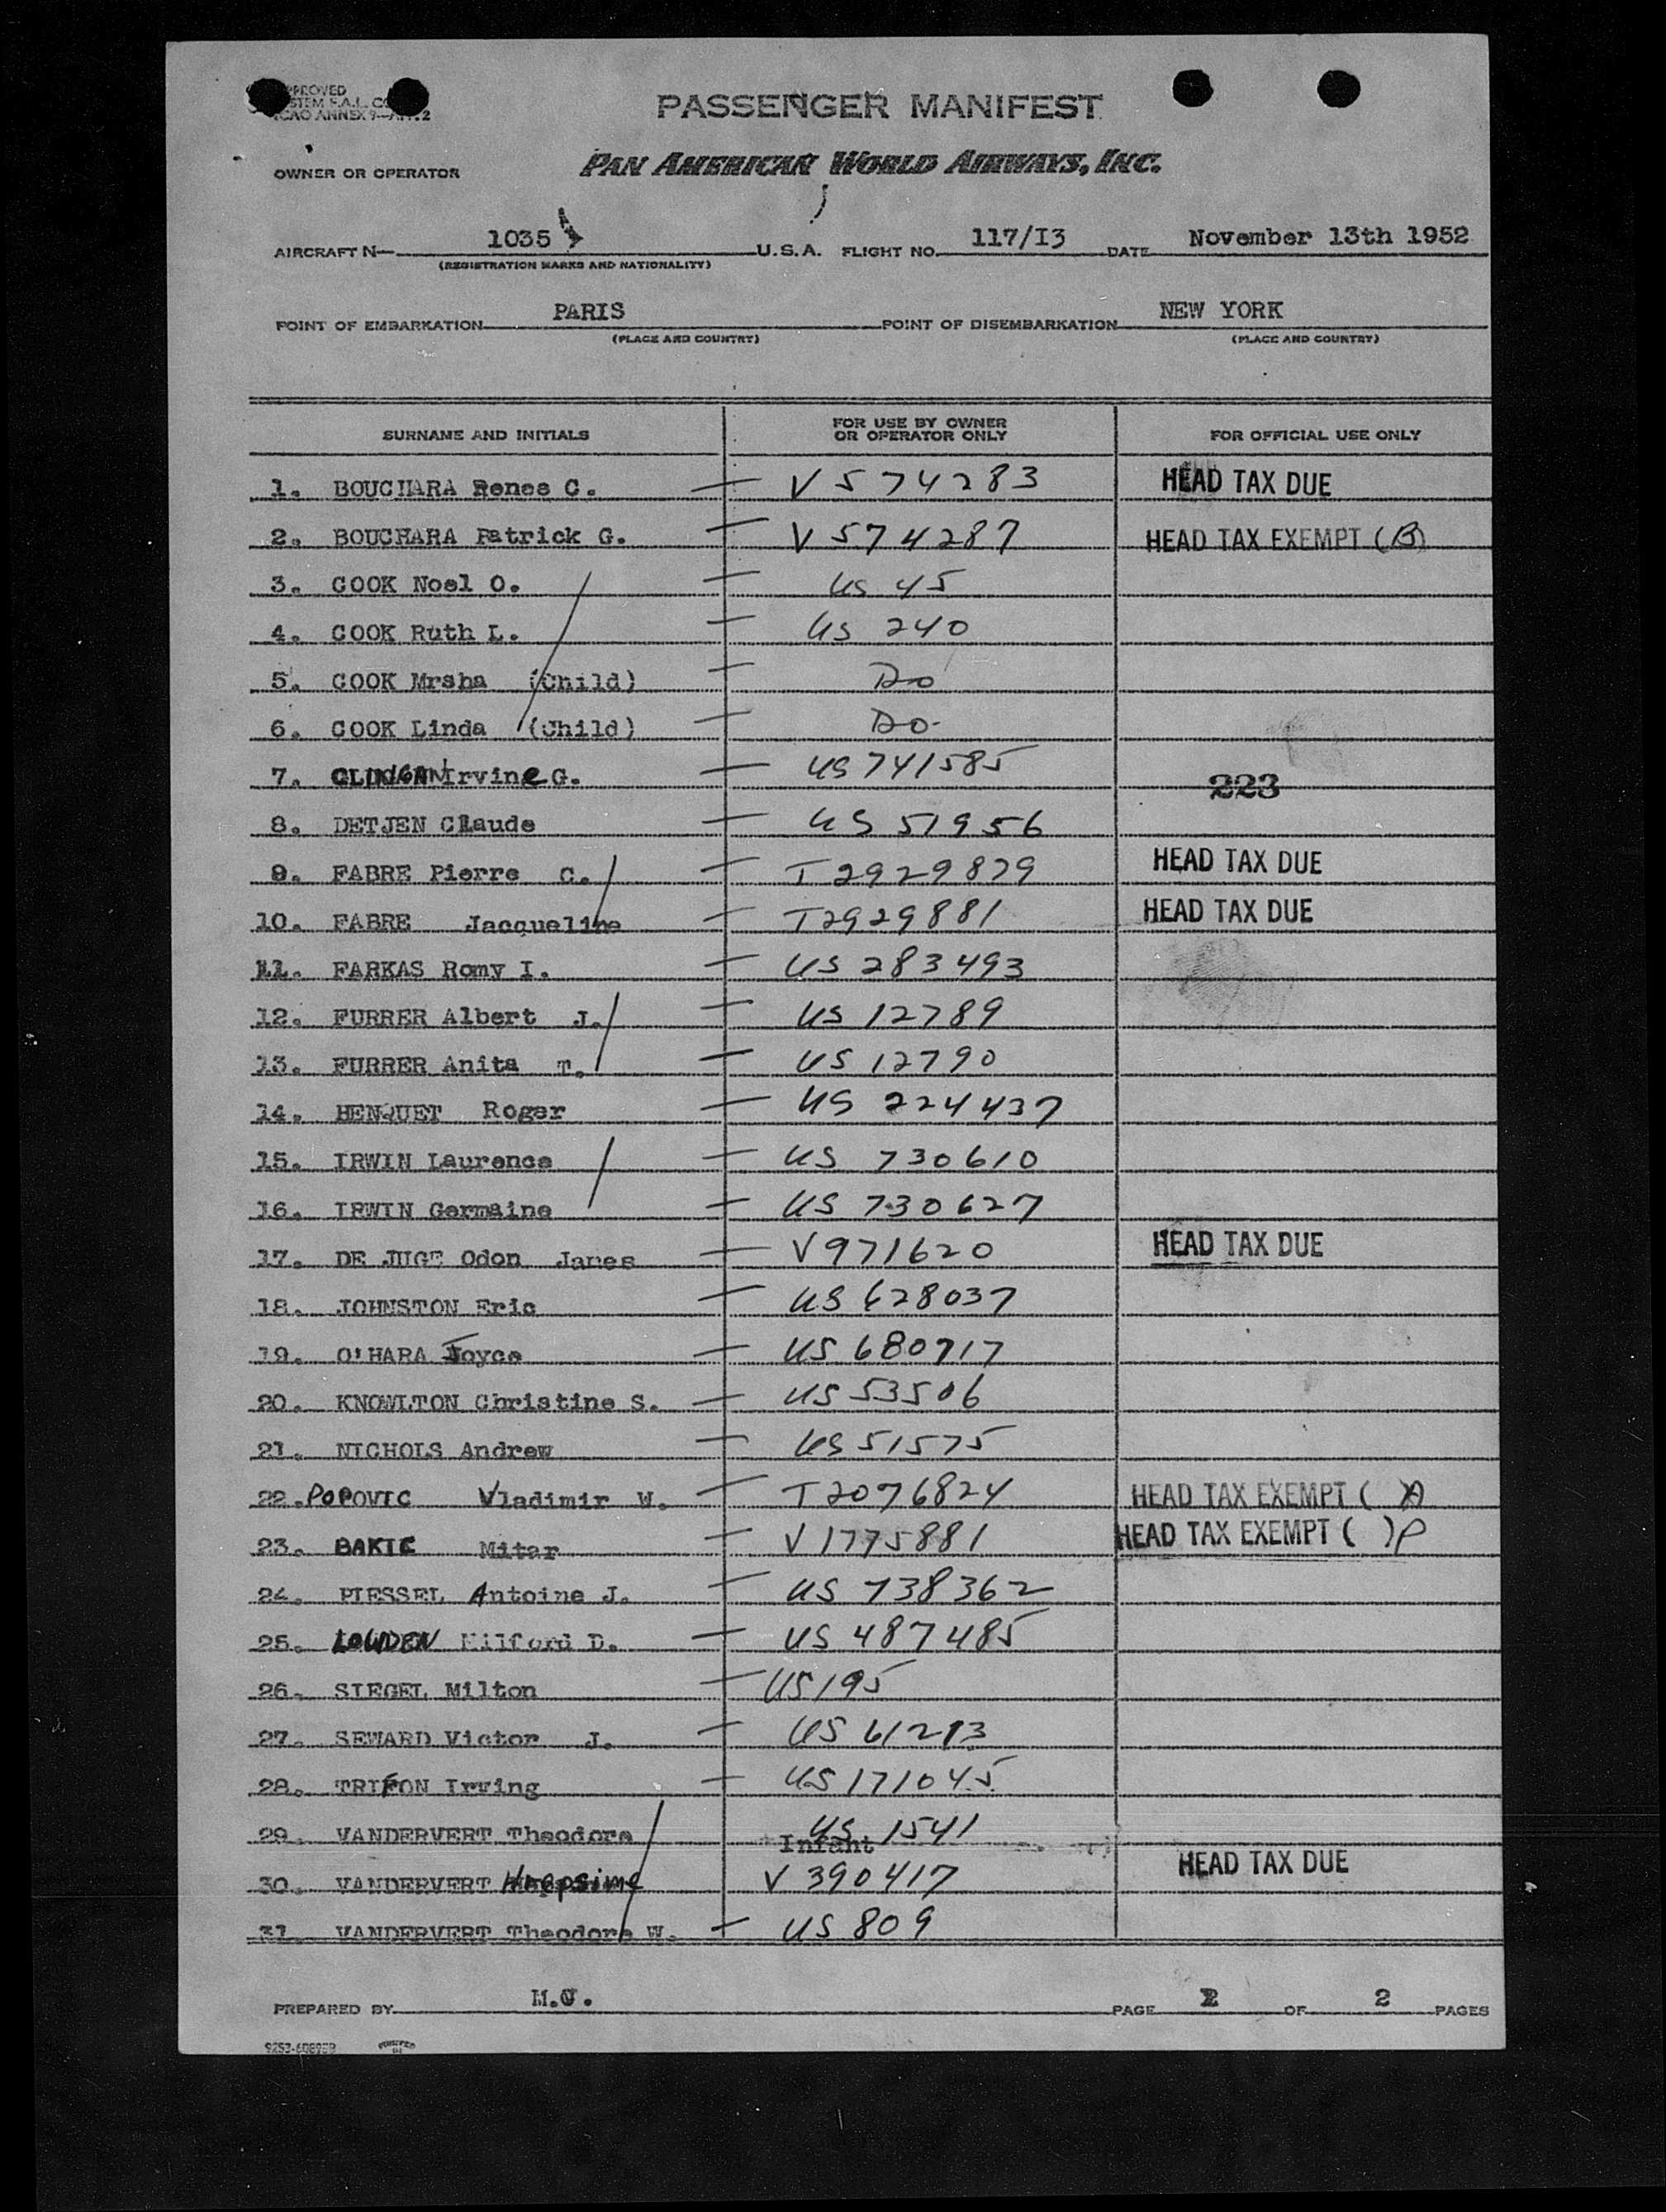 APPROVED
STEM F.A.L. CO
ICAO ANNEX 9—APP. 2
PASSENGER MANIFEST
OWNER OR OPERATOR PAN AMERICAN WORLD AIRWAYS, INC.
AIRCRAFT N— 1035 U.S.A. FLIGHT NO. 117/I3 DATE November 13th 1952
(REGISTRATION MARKS AND NATIONALITY)
POINT OF EMBARKATION PARIS POINT OF DISEMBARKATION NEW YORK
(PLACE AND COUNTRY) (PLACE AND COUNTRY)
SURNAME AND INITIALS FOR USE BY OWNER OR OPERATOR ONLY FOR OFFICIAL USE ONLY
1. BOUCHARA Renee C. — V 574283 HEAD TAX DUE
2. BOUCHARA Patrick G. — V 574287 HEAD TAX EXEMPT (B)
3. COOK Noel O. — US 45
4. COOK Ruth L. — US 240
5. COOK Mrsha (Child) — Do
6. COOK Linda (Child) — Do-
7. CLINGAN Irvine G. — US 741585
223
8. DETJEN Claude — US 51956
9. FABRE Pierre C. — T 2929879 HEAD TAX DUE
10. FABRE Jacqueline — T2929881 HEAD TAX DUE
11. FARKAS Romy I. — US 283493
12. FURRER Albert J. — US 12789
13. FURRER Anita T. — US 12790
14. HENQUET Roger — US 224437
15. IRWIN Laurence — US 730610
16. IRWIN Germaine — US 730627
17. DE JUGE Odon James — V971620 HEAD TAX DUE
18. JOHNSTON Eric — US 628037
19. O'HARA Joyce — US 680717
20. KNOWLTON Christine S. — US 53506
21. NICHOLS Andrew — US 51575
22. POPOVIC Vladimir W. — T 2076824 HEAD TAX EXEMPT ( )
23. BAKIC Mitar — V 1775881 HEAD TAX EXEMPT ( ) P
24. PIESSEL Antoine J. — US 738362
25. LOWDEN Milford D. — US 487485
26. SIEGEL Milton — US 195
27. SEWARD Victor J. — US 61213
28. TRIFON Irving — US 171045
29. VANDERVERT Theodore US 1541
Infant
30. VANDERVERT Hrepsime V 390417 HEAD TAX DUE
31. VANDERVERT Theodore W. — US 809
PREPARED BY M.J. PAGE 2 OF 2 PAGES